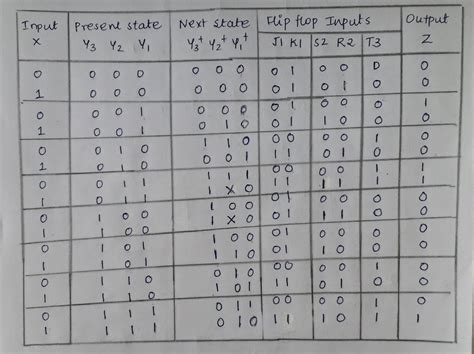 Input Present state Next state Flip flop Inputs Output
X Y3 Y2 Y1 Y3+ Y2+ Y1+ J1 K1 S2 R2 T3 Z
0 0 0 0 0 0 0 0 1 0 0 0 0
1 0 0 0 0 0 0 0 1 0 1 0 0
0 0 0 1 0 0 0 0 1 0 0 0 1
1 0 0 1 0 1 0 0 1 1 0 0 0
0 0 1 0 1 1 0 0 0 0 0 1 1
1 0 1 0 0 0 1 1 1 0 1 0 0
0 0 1 1 1 1 0 1 1 0 0 1 1
1 0 1 1 1 X 0 1 1 1 1 1 1
0 1 0 0 1 0 0 0 0 0 0 0 0
1 1 0 0 1 X 0 1 1 1 1 0 0
0 1 0 1 1 0 0 0 1 0 0 0 0
1 1 0 1 1 0 0 0 1 0 1 0 0
0 1 1 0 0 1 0 0 0 0 0 1 0
1 1 1 0 0 1 0 1 1 0 1 1 0
0 1 1 1 0 1 0 1 1 0 0 1 0
1 1 1 1 0 1 0 1 1 1 0 1 1